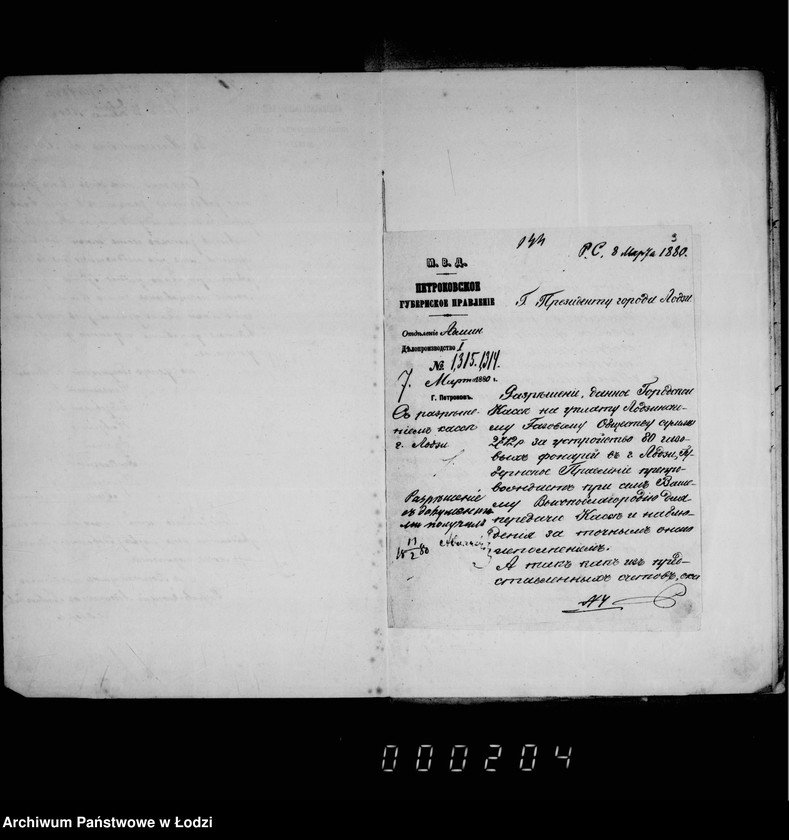 3
Р.С. 8 Марта 1880.
М. В. Д.
ПЕТРОКОВСКОЕ
ГУБЕРНСКОЕ ПРАВЛЕНІЕ
Отдѣленіе Админ.
Дѣлопроизводство I
№ 1315,1314.
7. Март 1880 г.
Г. Петроковъ.
Съ разрѣше-
ніемъ кассѣ
г. Лодзи
Разрѣшеніе
съ документа-
ми получилъ
Г. Президенту города Лодзи.
Разрѣшеніе, данное Городской
Кассѣ на уплату Лодзинско-
му Газовому Обществу суммы
за устройство 80 газо-
выхъ фонарей въ г. Лодзи, Гу-
бернское Правленіе препро-
вождаетъ при семъ Ваше-
му Высокоблагородію для
передачи Кассѣ и наблю-
денія за точнымъ онаго
исполненіемъ.
А такъ какъ изъ пред-
ставленныхъ счетовъ, ока
000204
Archiwum Państwowe w Łodzi